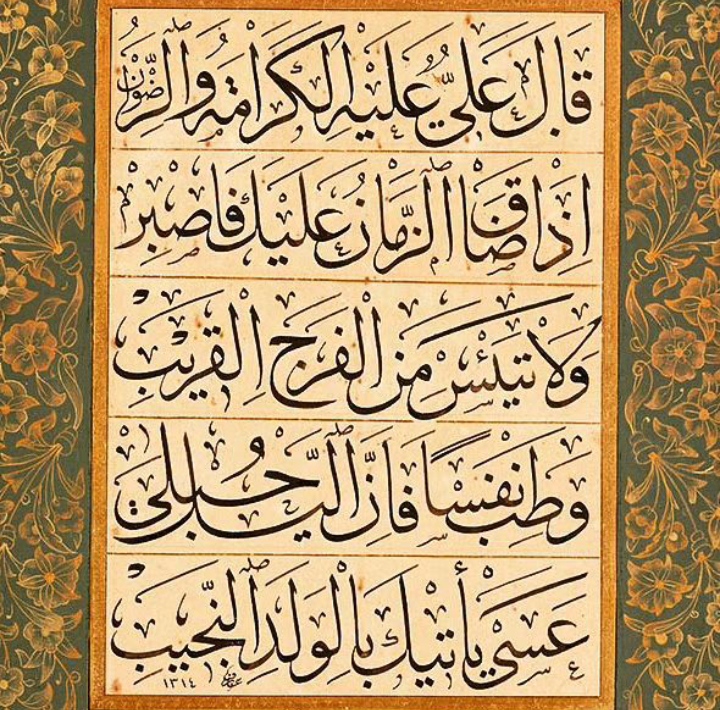 قَالَ عَلِيٌّ عَلَيْهِ الْكَرَامَةُ وَالرِّضْوَانُ
اِذَا ضَاقَ الزَّمَانُ عَلَيْكَ فَاصْبِرْ
وَلَا تَيْئَسْ مِنَ الْفَرَجِ الْقَرِيبِ
وَطِبْ نَفْسًا فَاِنَّ اللَّيْلَ حُبْلٰى
عَسٰى يَأْتِيكَ بِالْوَلَدِ النَّجِيبِ
١٣١٤